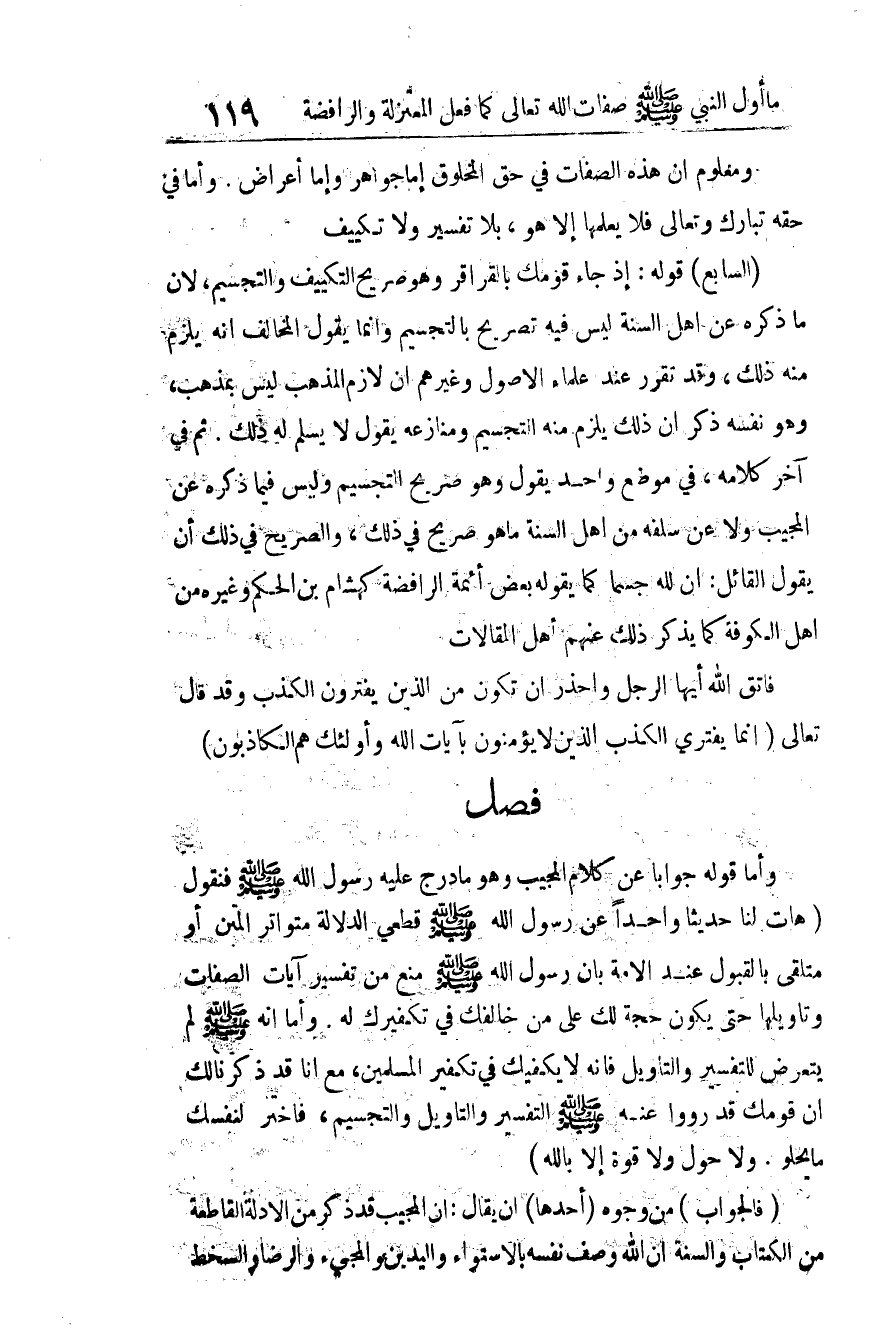 ما أول النبي ﷺ صفات الله تعالى كما فعل المعتزلة والرافضة ١١٩
ومعلوم ان هذه الصفات في حق المخلوق إما جواهر وإما أعراض . وأما في
حقه تبارك وتعالى فلا يعلمها إلا هو ، بلا تفسير ولا تكييف
(السابع) قوله : إذ جاء قومك بالقراقر وهو صريح التكييف والتجسيم، لان
ما ذكره عن اهل السنة ليس فيه تصريح بالتجسيم وانما يقول المخالف انه يلزم
منه ذلك ، وقد تقرر عند علماء الاصول وغيرهم ان لازم المذهب ليس بمذهب،
وهو نفسه ذكر ان ذلك يلزم منه التجسيم ومنازعه يقول لا يسلم له ذلك . ثم في
آخر كلامه ، في موضع واحد يقول وهو صريح التجسيم وليس فيما ذكره عن
المجيب ولا عن سلفه من اهل السنة ماهو صريح في ذلك ، والصريح في ذلك أن
يقول القائل : ان لله جسما كما يقوله بعض أئمة الرافضة كهشام بن الحكم وغيره من
اهل الكوفة كما يذكر ذلك عنهم أهل المقالات
فاتق الله أيها الرجل واحذر ان تكون من الذين يفترون الكذب وقد قال
تعالى ( انما يفتري الكذب الذين لا يؤمنون بآيات الله وأولئك هم الكاذبون)
فصل
وأما قوله جوابا عن كلام المجيب وهو مادرج عليه رسول الله ﷺ فنقول
( هات لنا حديثا واحداً عن رسول الله ﷺ قطعي الدلالة متواتر المتن أو
متلقى بالقبول عند الامة بان رسول الله ﷺ منع من تفسير آيات الصفات
وتاويلها حتى يكون حجة لك على من خالفك في تكفيرك له . وأما انه ﷺ لم
يتعرض للتفسير والتاويل فانه لا يكفيك في تكفير المسلمين، مع انا قد ذكرنا لك
ان قومك قد رووا عنه ﷺ التفسير والتاويل والتجسيم ، فاختر لنفسك
مايحلو . ولا حول ولا قوة إلا بالله )
( فالجواب ) من وجوه (أحدها) ان يقال : ان المجيب قد ذكر من الادلة القاطعة
من الكتاب والسنة ان الله وصف نفسه بالاستواء واليدين والمجيء والرضا والسخط